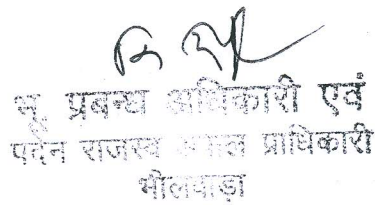 भू. प्रबन्ध अधिकारी एवं
पदेन राजस्व अपील प्राधिकारी
भीलवाड़ा